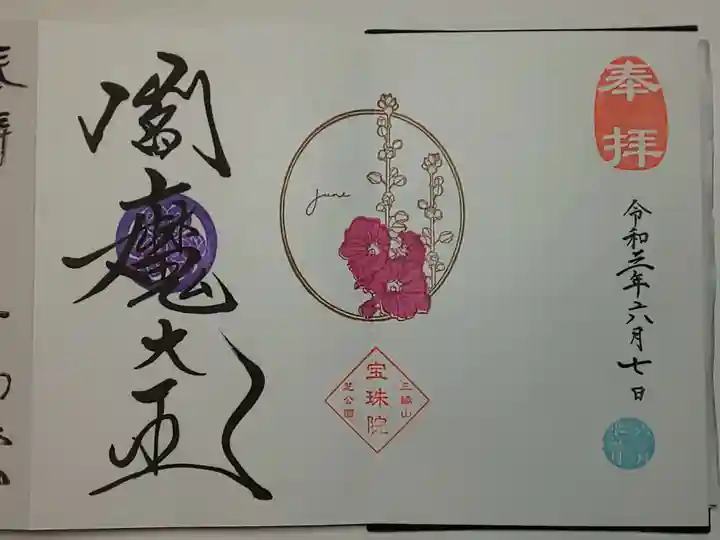 奉拝
令和三年六月七日
june
三縁山
宝珠院
芝公園
閻魔大王
奉拝